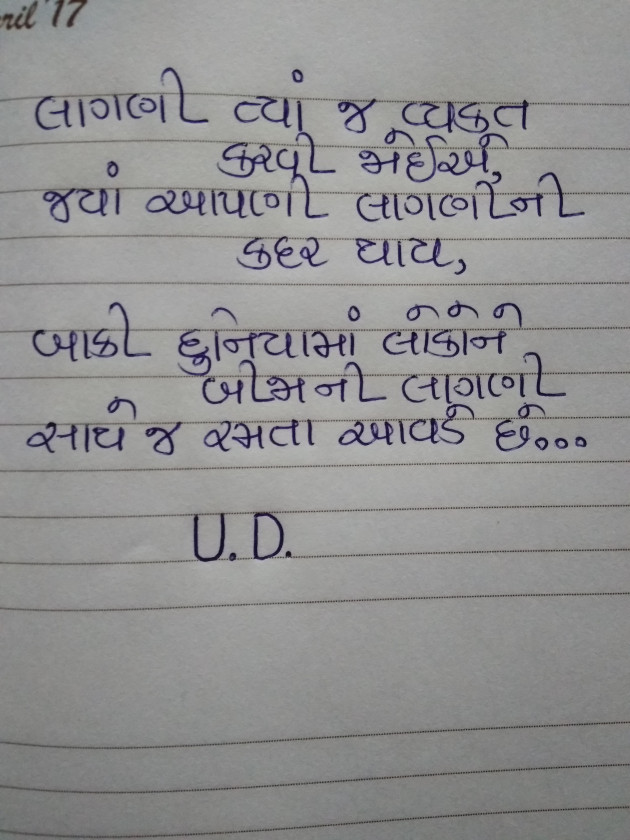 ril '17
લાગણી ત્યાં જ વ્યકત
કરવી જોઈએ,
જયાં આપણી લાગણીની
કદર થાય,
બાકી દુનિયામાં લોકોને
બીજાની લાગણી
સાથે જ રમતા આવડે છે...
U.D.